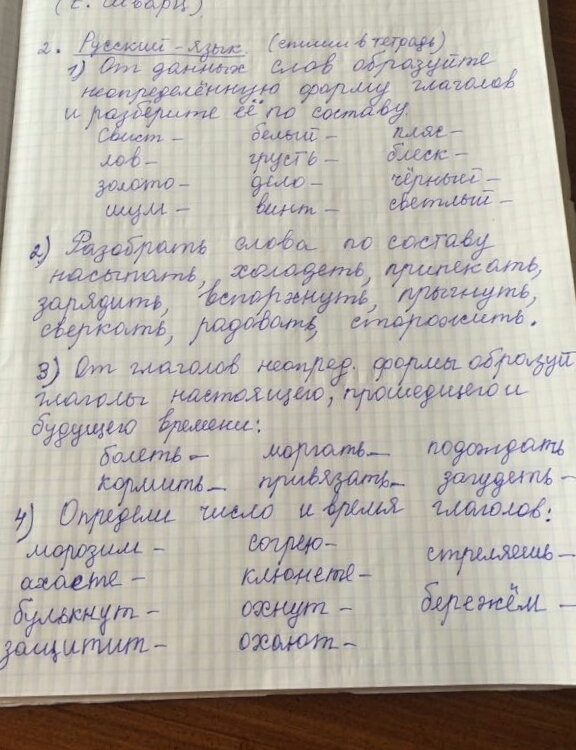 (Е. Шварц)
2. Русский - язык. (спиши в тетрадь)
1) От данных слов образуйте
неопределённую форму глаголов
и разберите её по составу.
Свист - белый - пляс -
лов - грусть - блеск -
золото - дело - чёрный -
шум - винт - светлый -
2) Разобрать слова по составу
насыпать, холодеть, припекать,
зарядить, вспорхнуть, прыгнуть,
сверкать, радовать, сторожить.
3) От глаголов неопред. формы образуй
глаголы настоящего, прошедщего и
будущего времени:
болеть - моргать - подождать
кормить - привязать - загудеть -
4) Определи число и время глаголов:
морозим - согрею - стреляешь -
ахаете - клюнете -
булькнут - охнут - бережём -
защитит - охают -